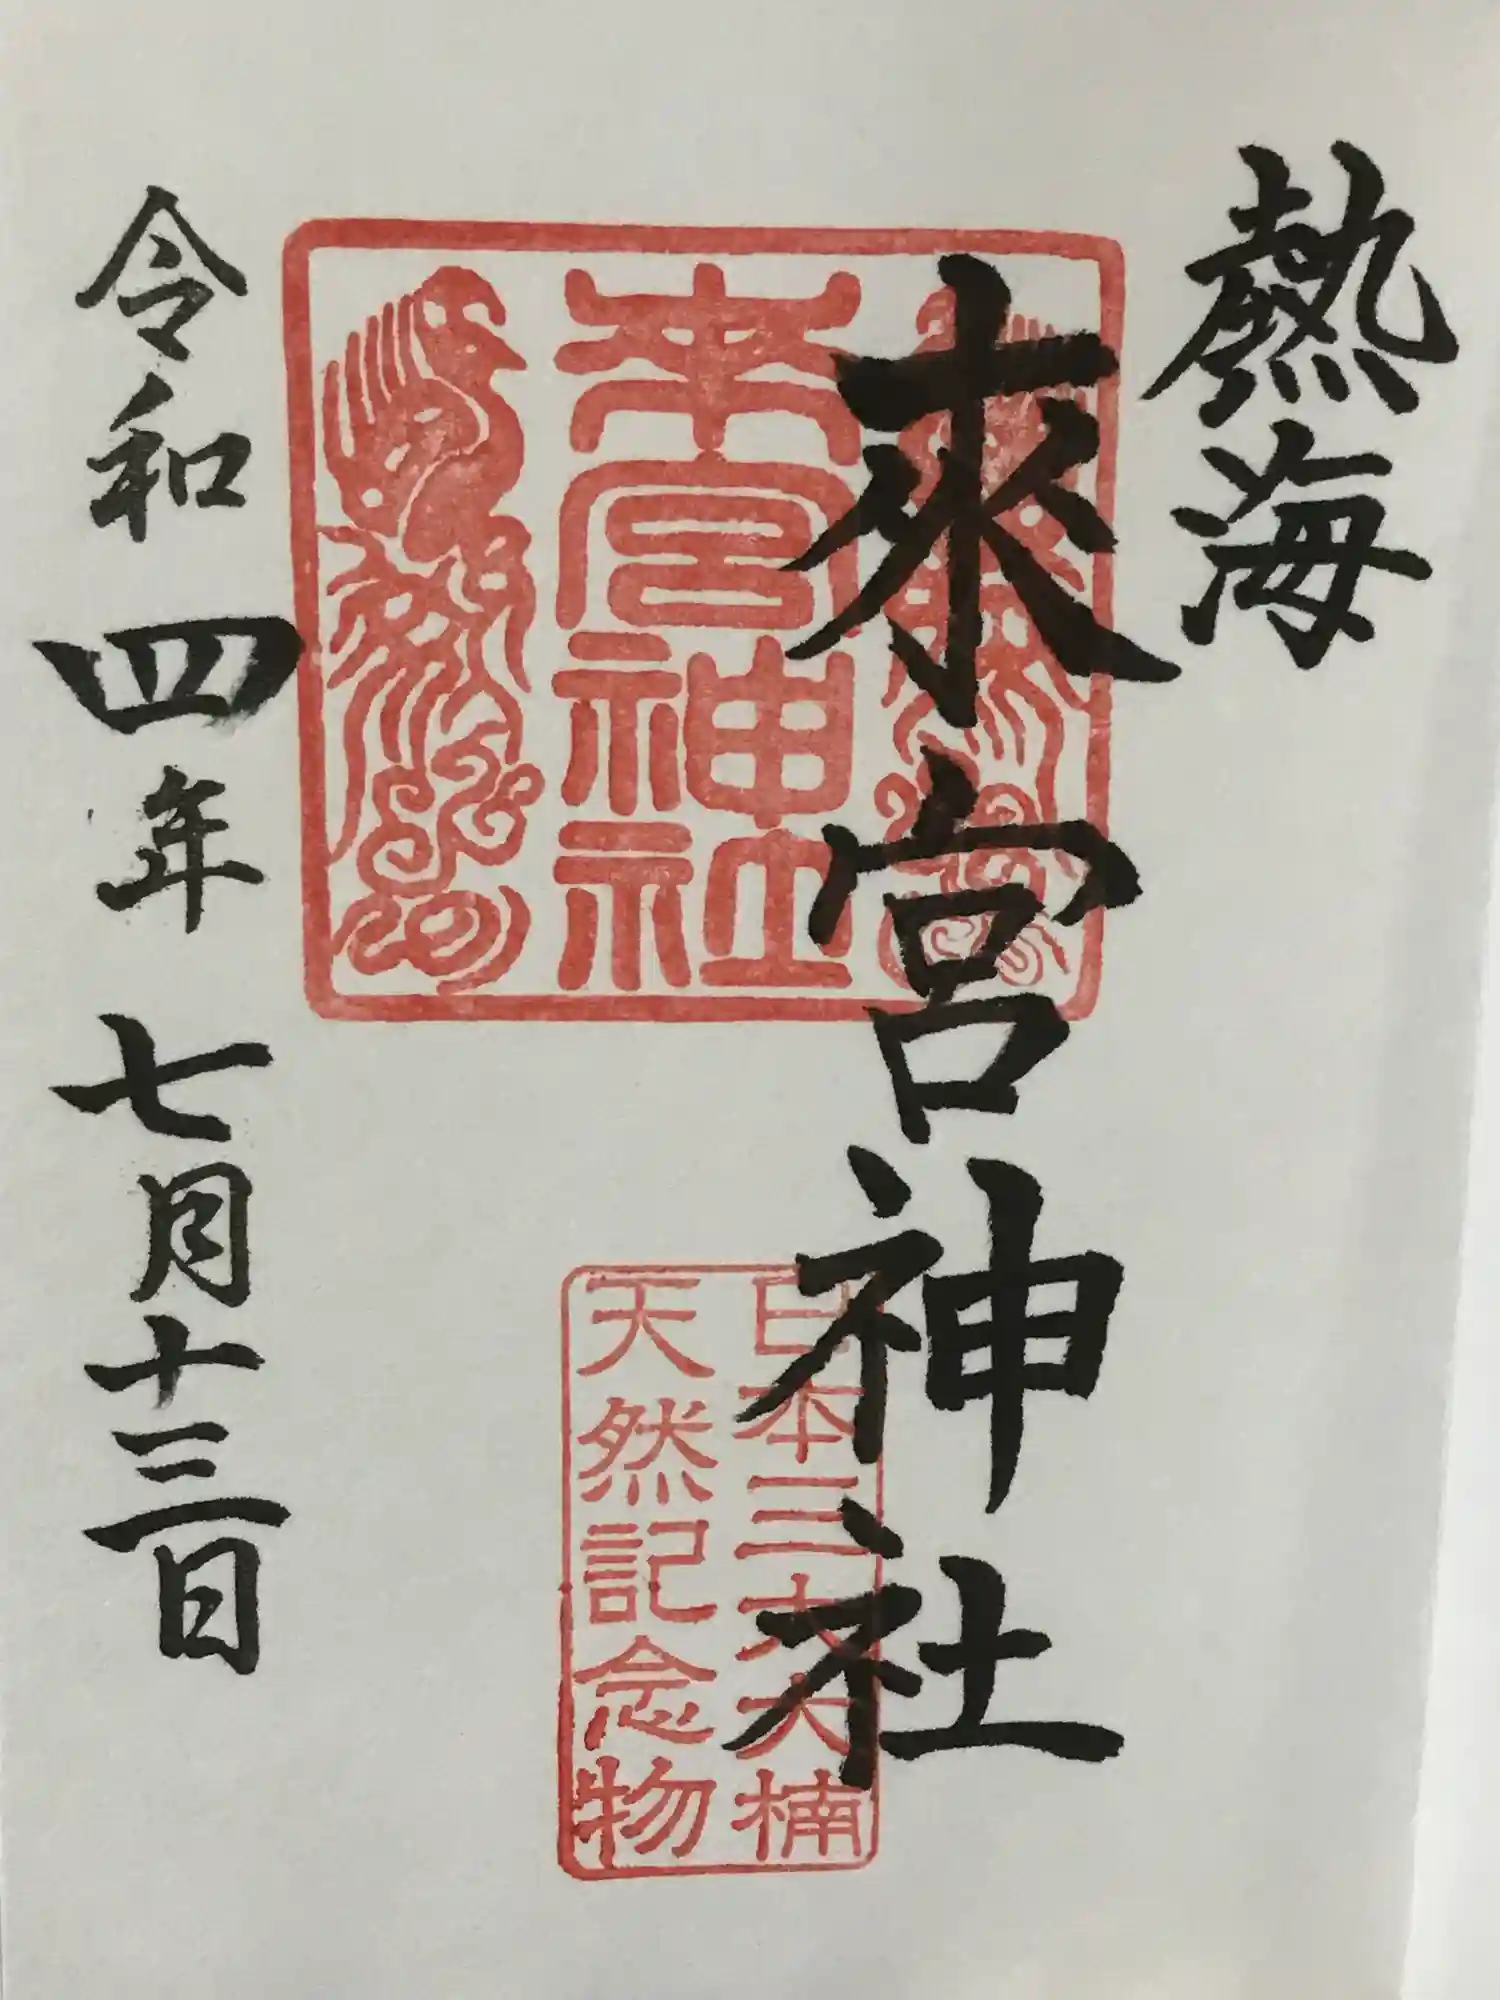 熱海
來宮神社
来宮神社
日本三大大楠
天然記念物
令和四年七月十三日